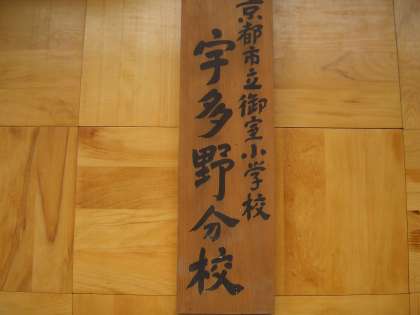 京都市立御室小学校
宇多野分校